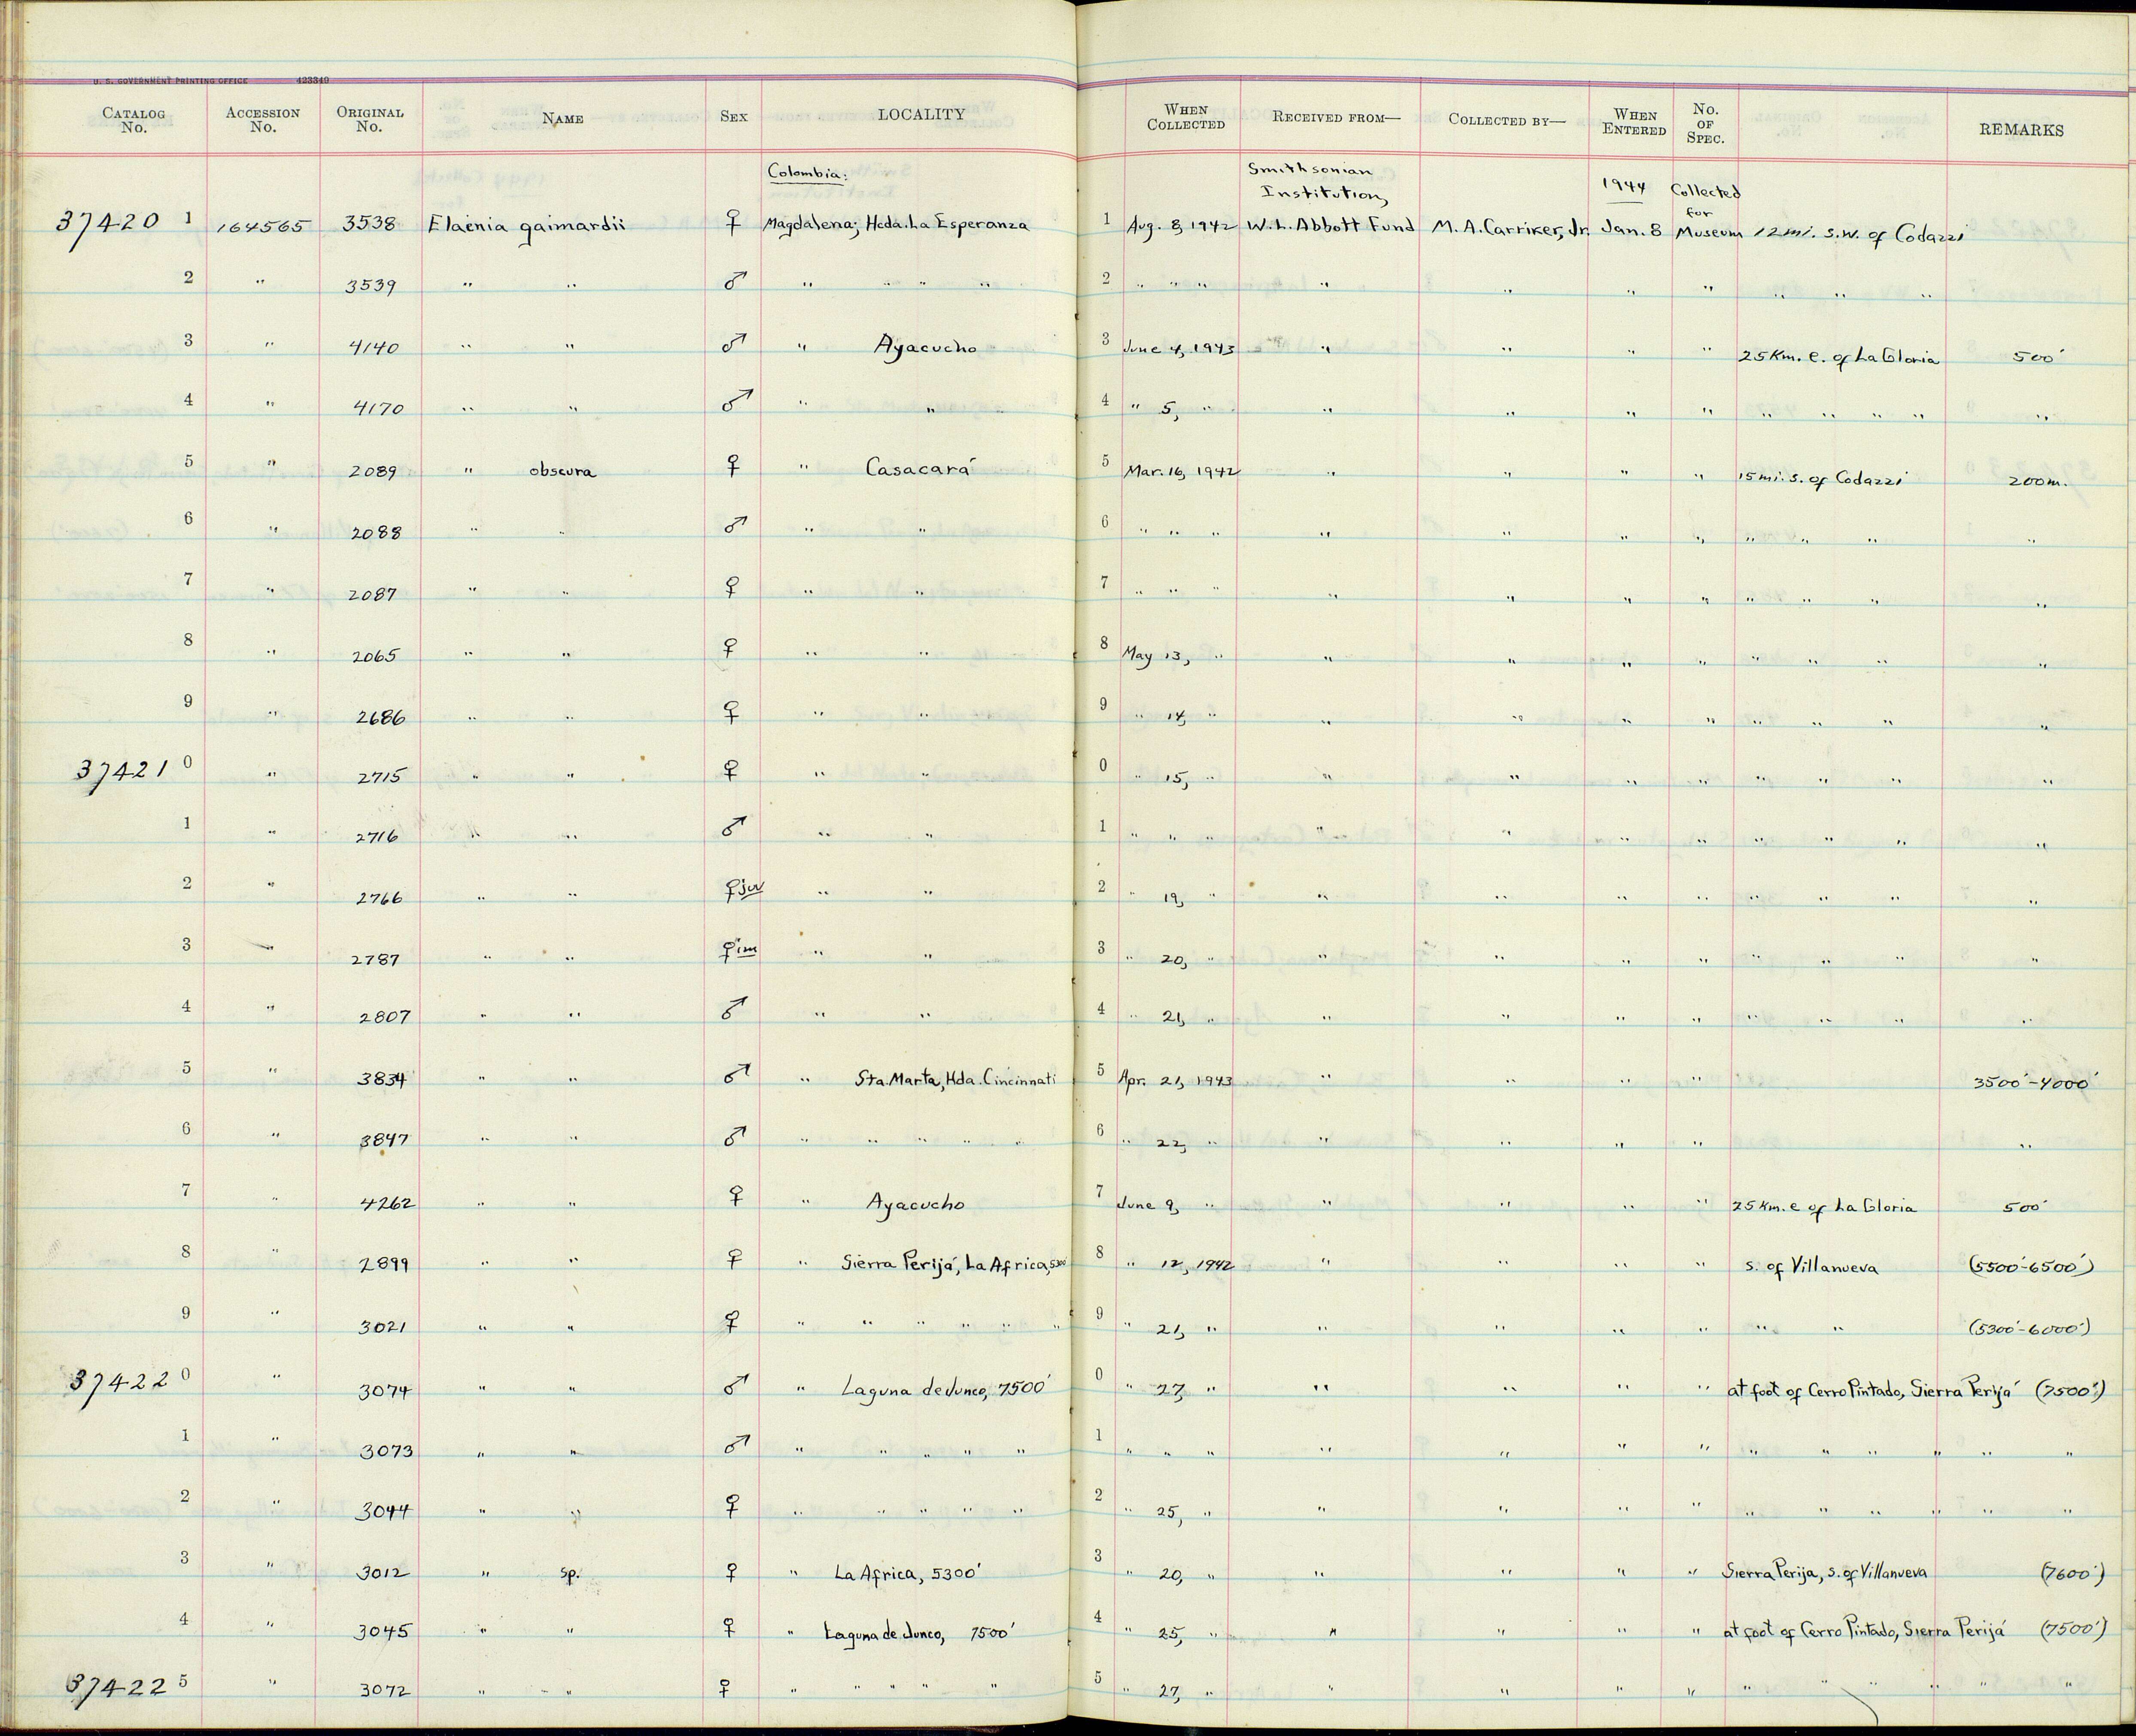 U. S. GOVERNMENT PRINTING OFFICE 423349
CATALOG No. ACCESSION No. ORIGINAL No. NAME SEX LOCALITY WHEN COLLECTED RECEIVED FROM— COLLECTED BY— WHEN ENTERED No. OF SPEC. REMARKS
Colombia: Smithsonian Institution, 1944 Collected for
37420 1 164565 3538 Elaenia gaimardii ♀ Magdalena; Hcda. La Esperanza 1 Aug. 8, 1942 W. L. Abbott Fund M. A. Carriker, Jr. Jan. 8 Museum 12 mi. s.w. of Codazzi
2 " 3539 " " ♂ " " " " 2 " " " " " " " " " "
3 " 4140 " " ♂ " Ayacucho 3 June 4, 1943 " " " " 25 Km. e. of La Gloria 500'
4 " 4170 " " ♂ " " 4 " 5, " " " " " " " " " "
5 " 2089 " obscura ♀ " Casacará 5 Mar. 16, 1942 " " " " 15 mi. s. of Codazzi 200m.
6 " 2088 " " ♂ " " 6 " " " " " " " " " " "
7 " 2087 " " ♀ " " 7 " " " " " " " " " " "
8 " 2065 " " ♀ " " 8 May 13, " " " " " " " " "
9 " 2686 " " ♀ " " 9 " 14, " " " " " " " " "
37421 0 " 2715 " " ♀ " " 0 " 15, " " " " " " " " "
1 " 2716 " " ♂ " " 1 " " " " " " " " " " "
2 " 2766 " " ♀ juv " " 2 " 19, " " " " " " " " "
3 " 2787 " " ♀ im " " 3 " 20, " " " " " " " " "
4 " 2807 " " ♂ " " 4 " 21, " " " " " " " " "
5 " 3834 " " ♂ " Sta. Marta, Hda. Cincinnati 5 Apr. 21, 1943 " " " " 3500'-4000'
6 " 3847 " " ♂ " " " " " 6 " 22, " " " " " "
7 " 4262 " " ♀ " Ayacucho 7 June 9, " " " " " 25 Km. e of La Gloria 500'
8 " 2899 " " ♀ " Sierra Perijá, La Africa, 5300' 8 " 12, 1942 " " " " s. of Villanueva (5500'-6500')
9 " 3021 " " ♀ " " " " " " 9 " 21, " " " " " " " (5300'-6000')
37422 0 " 3074 " " ♂ " Laguna de Junco, 7500' 0 " 27, " " " " " at foot of Cerro Pintado, Sierra Perijá (7500')
1 " 3073 " " ♂ " " " " " 1 " " " " " " " " " " " " "
2 " 3044 " " ♀ " " " " " 2 " 25, " " " " " " " " " " "
3 " 3012 " sp. ♀ " La Africa, 5300' 3 " 20, " " " " " Sierra Perija, s. of Villanueva (7600')
4 " 3045 " " ♀ " Laguna de Junco, 7500' 4 " 25, " " " " " at foot of Cerro Pintado, Sierra Perijá (7500')
37422 5 " 3072 " " ♀ " " " " " 5 " 27, " " " " " " " " " "